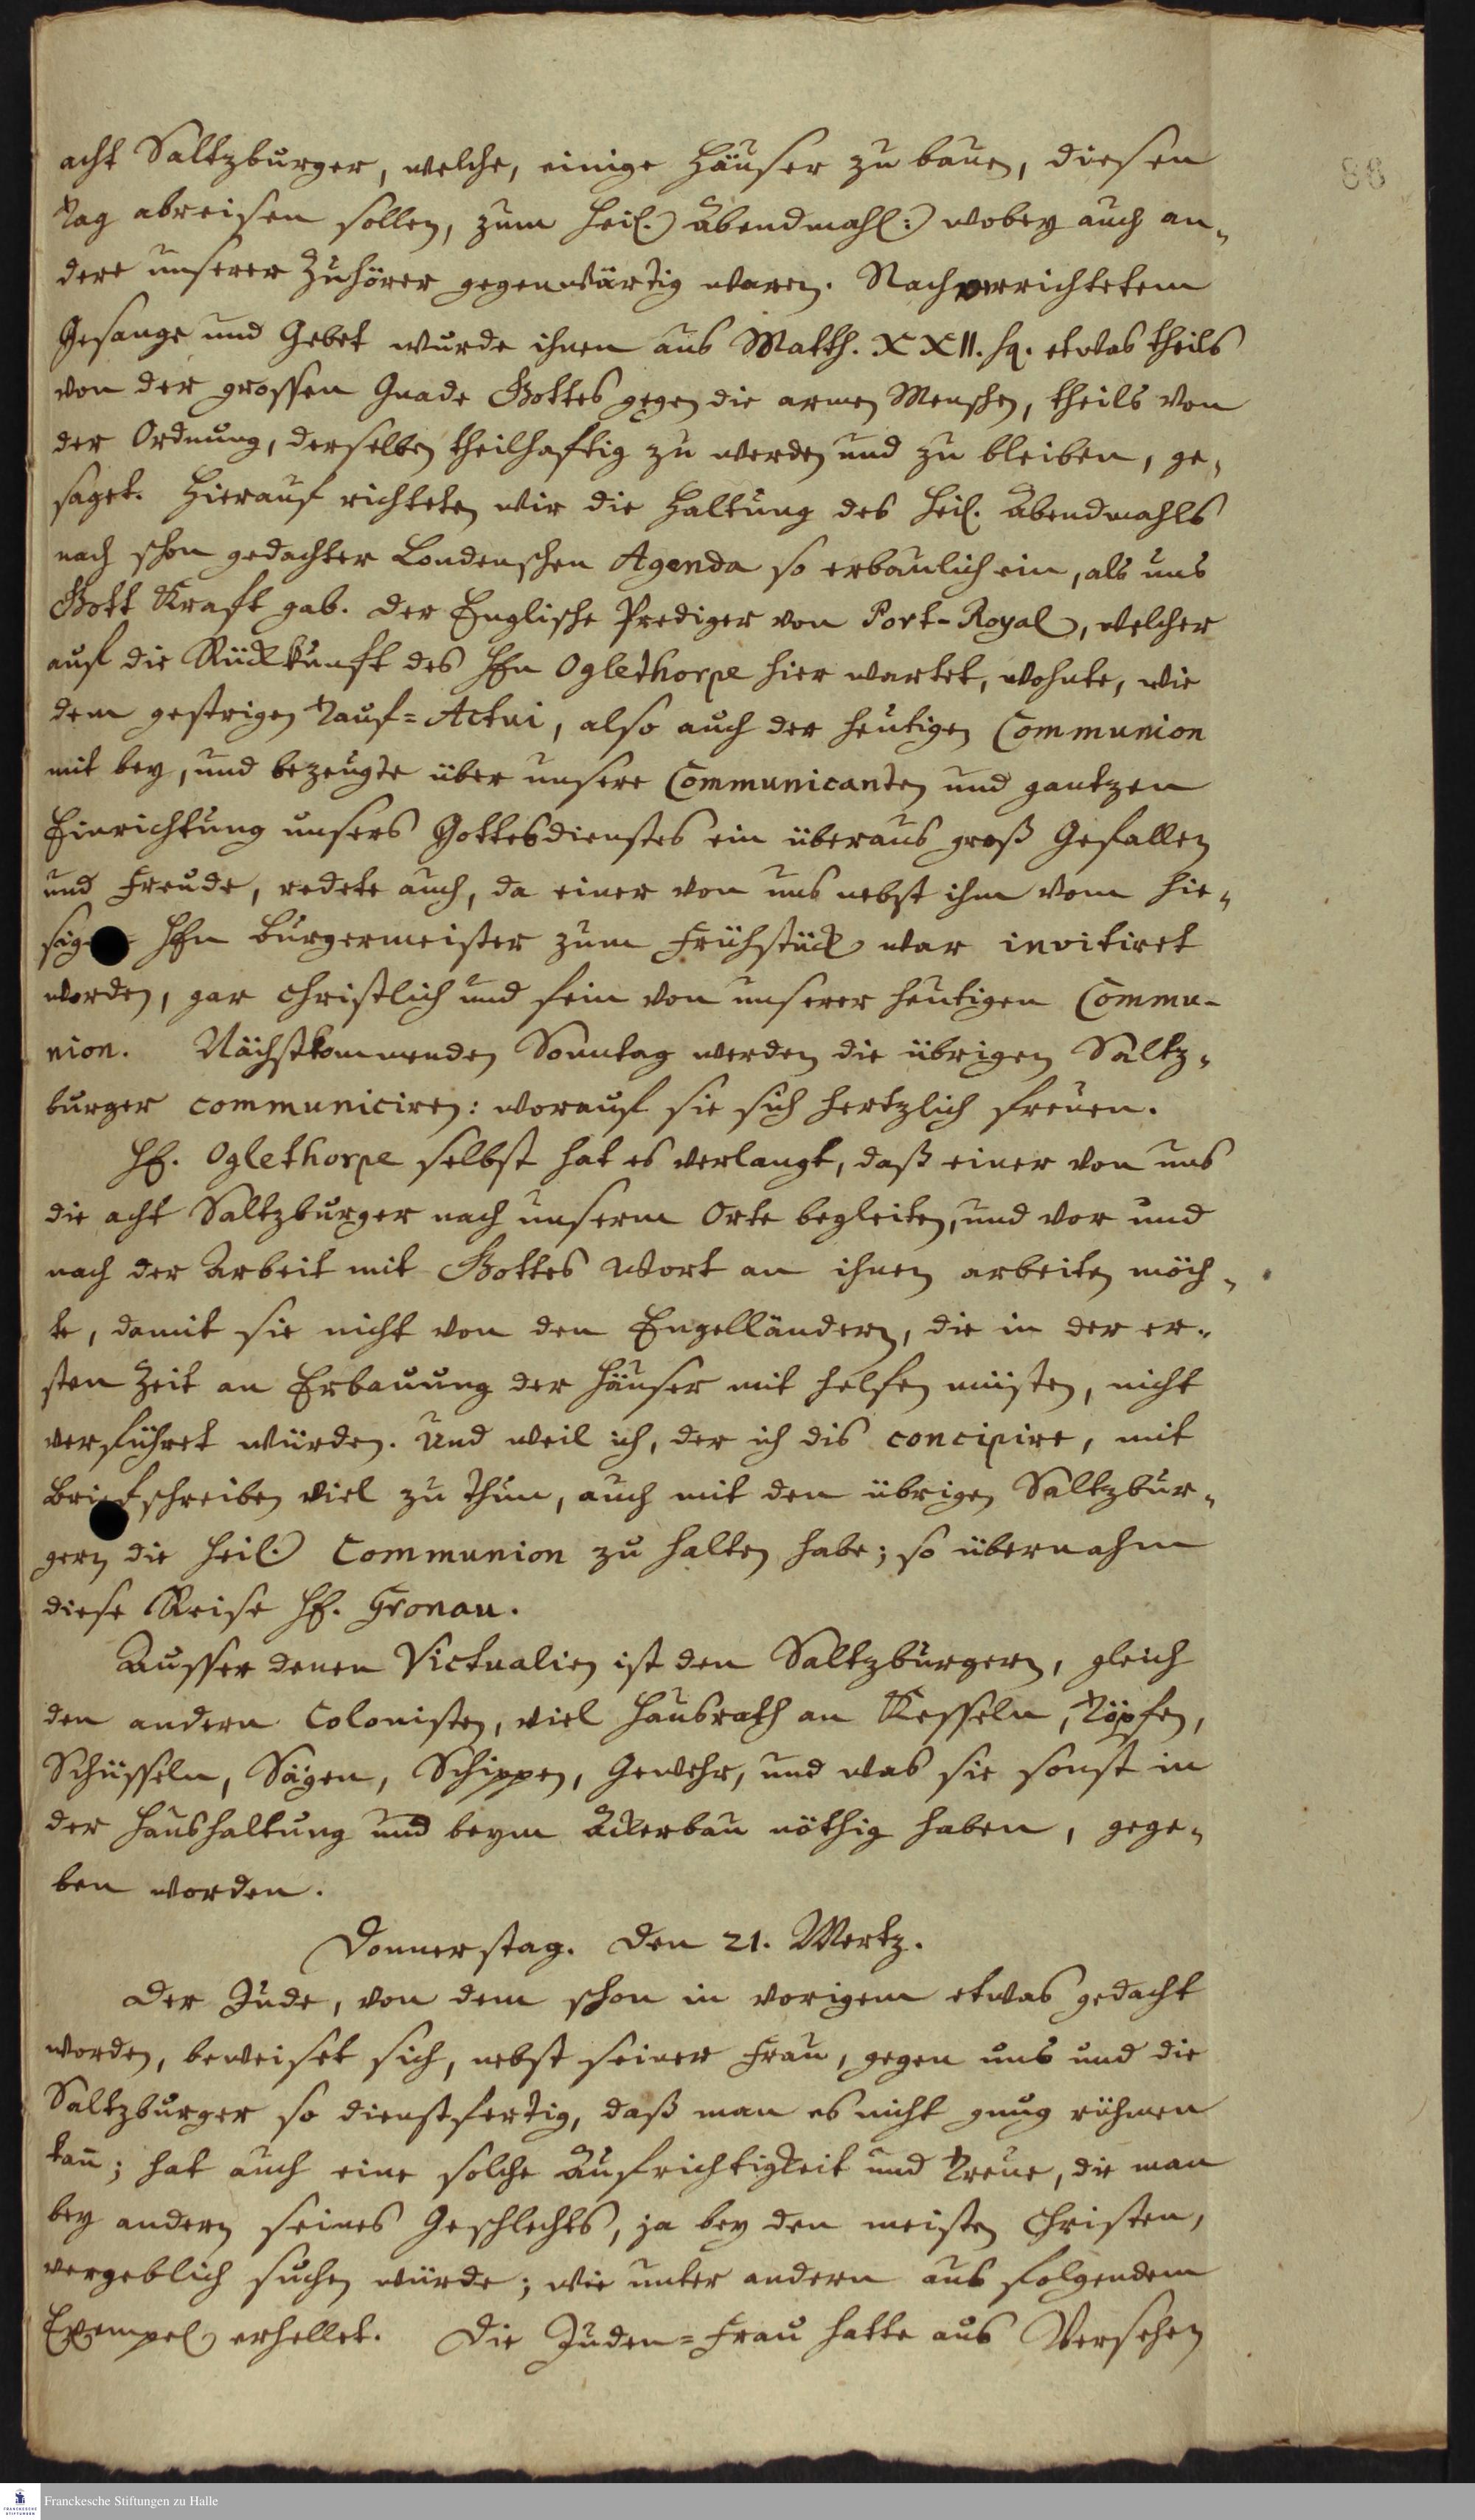 88
acht Saltzburger, welche, einige Häuser zu bauen, diesen
Tag abreisen sollen, zum heil. Abendmahl:) wobey auch an-
dere unserer Zuhörer gegenwärtig waren. Nach verrichtetem
Gesange und Gebet wurde ihnen aus Matth. XXII. sq. etwas theils
von der grossen Gnade Gottes gegen die armen Menschen, theils von
der Ordnung, derselben theilhaftig zu werden und zu bleiben, ge-
saget. Hierauf richteten wir die Haltung des heil. Abendmahls
nach schon gedachter Londenschen Agenda so erbaulich ein, als uns
Gott Kraft gab. Der Englische Prediger von Port-Royal, welcher
auf die Rückkunft des Hn Oglethorpe hier wartet, wohnte, wie
dem gestrigen Tauf-Actui, also auch der heutigen Communion
mit bey, und bezeugte über unsere Communicanten und gantzen
Einrichtung unsers Gottesdienstes ein überaus groß Gefallen
und Freude, redete auch, da einer von uns nebst ihm vom hie-
sigen Hn Burgermeister zum Frühstück war invitiret
worden, gar christlich und fein von unserer heutigen Commu-
nion. Nächstkommenden Sonntag werden die übrigen Saltz-
burger communiciren: worauf sie sich hertzlich freuen.
H. Oglethorpe selbst hat es verlangt, daß einer von uns
die acht Saltzburger nach unserm Orte begleiten, und vor und
nach der Arbeit mit Gottes Wort an ihnen arbeiten möch-
te, damit sie nicht von den Engelländern, die in der er-
sten Zeit an Erbauung der Häuser mit helfen müsten, nicht
verführet würden. Und weil ich, der ich dis concipire, mit
Briefschreiben viel zu thun, auch mit den übrigen Saltzbur-
gern die heil. Communion zu halten habe; so übernahm
diese Reise H. Gronau.
Ausser denen Victualien ist den Saltzburgern, gleich
den andern Colonisten, viel Hausrath an Kesseln, Töpfen,
Schüsseln, Sägen, Schippen, Gewehr, und was sie sonst in
der Haushaltung und beym Ackerbau nöthig haben, gege-
ben worden.
Donnerstag. Den 21. Mertz.
Der Jude, von dem schon in vorigem etwas gedacht
worden, beweiset sich, nebst seiner Frau, gegen uns und die
Saltzburger so dienstfertig, daß man es nicht gnug rühmen
kan̄; hat auch eine solche Aufrichtigkeit und Treue, die man
bey andern seines Geschlechts, ja bey den meisten Christen,
vergeblich suchen würde; wie unter andern aus folgendem
Exempel erhellet. Die Juden-Frau hatte aus Versehen
Franckesche Stiftungen zu Halle